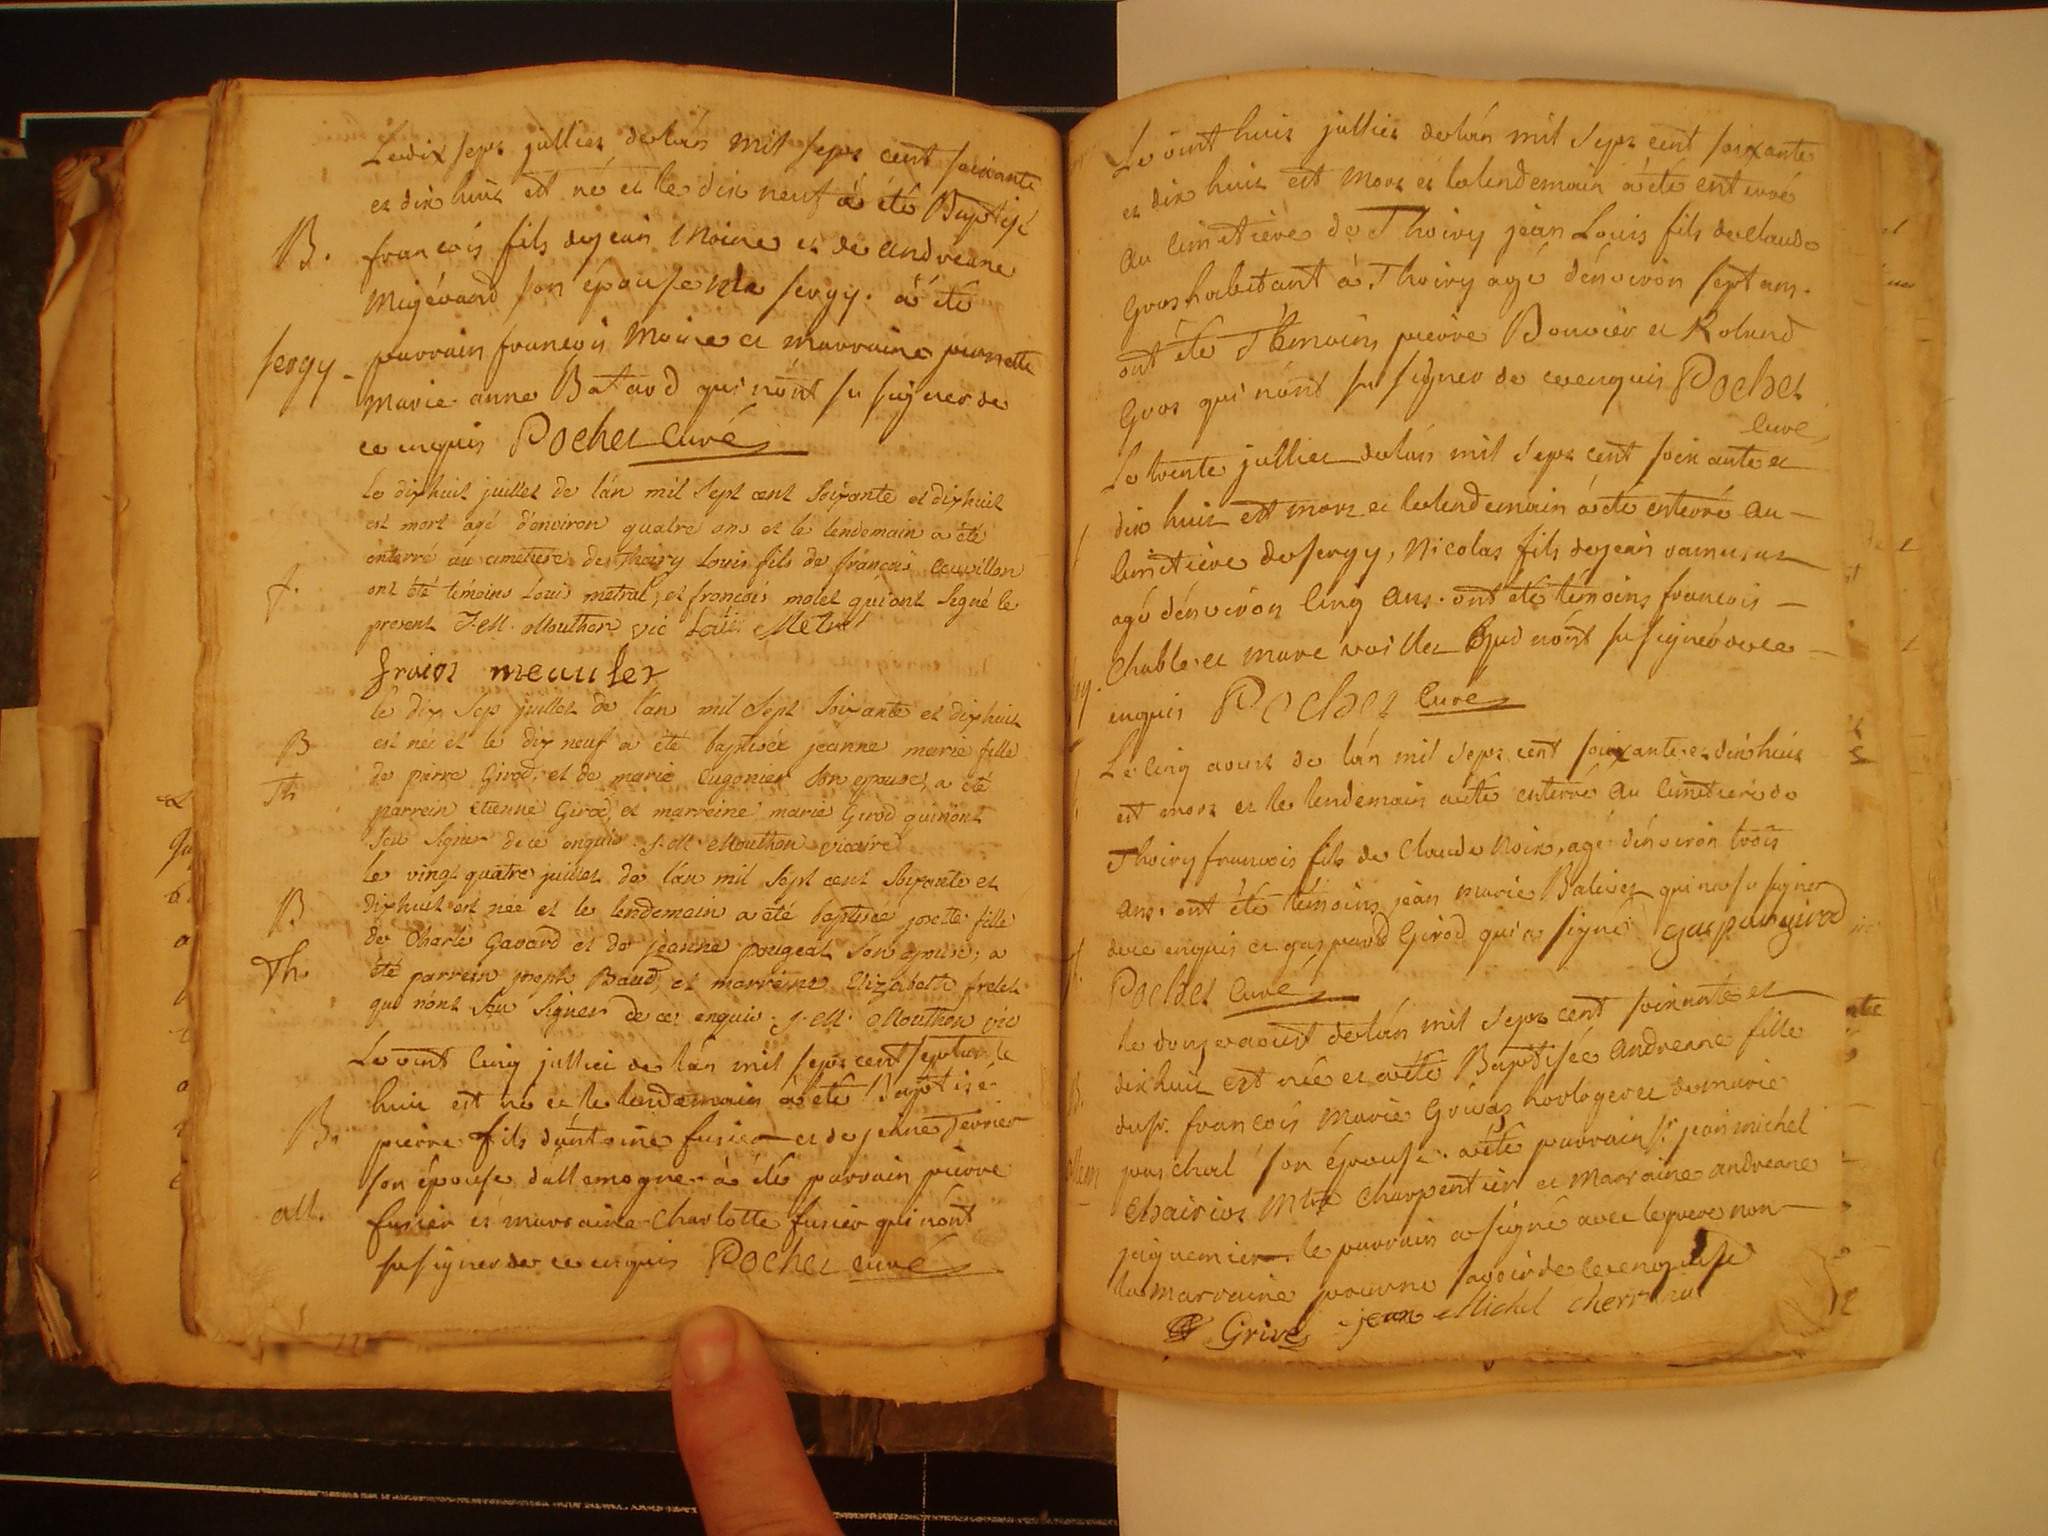 Le dix sept jullier de lán mil sept cent soixante
et dix huit est né et le dix neuf à été Baptisé
B.
françois fils de jean Moine et de andreane
Migérand son épouse de sergy. à été
sergy - parrain francois Moine et marraine pernette
marie anne Batard qui nónt su signer de
ce enquis Pochet Curé
Le dixhuit juillet de lán mil sept cent soixante et dixhuit
est mort agé d'environ quatre ans et le lendemain a été
enterré au cimetiere de Thoiry Louis fils de françois
f.
ont été témoins Louis metral, et françois molet qui ont signé le
present J. M. Mouthon vic Loüi Metral
le dix sep juillet de lán mil sept soixante et dixhuit
B
est née et le dix neuf a été baptisée jeanne marie fille
de pierre Girod, et de marie Cugonier son epouse, a été
Th
parrein etienne Girod, et marreine marie Girod qui nónt
sçu signer de ce enquis J. M. Mouthon vicaire
Le vingt quatre juillet de lán mil sept cent soixante et
B
dixhuit est née et le lendemain a été baptisée josette fille
de Charle Gavard et de jeanne pougeat son epouse, a
Th
été parrein joseph Baud, et marreine Elizabeth frelet
qui nónt sçu signer de ce enquis. J. M. Mouthon vic
Le vint cinq jullier de lán mil sept cent septante
huit est né et le lendemain à été Baptisé
B.
pierre fils dántoine fusier et de jeanne Tevrier
son épouse dállemogne. à été parrain pierre
all.
fusier et marraine Charlotte fusier qui nónt
su signer de ce enquis Pochet curé
Le vint huit jullier de lán mil sept cent soixante
et dix huit est mort et le lendemain à été enterré
au cimetière de Thoiry jean Louis fils de claude
Gros habitant à Thoiry agé dénviron sept ans.
ont été Témoins pierre Bouvier et Roland
Gros qui nónt su signer de ce enquis Pochet
Curé
Le trente jullier de lán mil sept cent soixante et
dix huit est mort et le lendemain à été enterré au
cimetière de sergy, Nicolas fils de jean
agé dénviron cinq ans. ont été témoins françois
Chable et marc nónt su signer de ce
enquis Pochet Curé
Le cinq aoust de lán mil sept cent soixante et dixhuit
est mort et le lendemain a été enterré au cimetière de
Thoiry francois fils de Claude Noir, agé dénviron trois
ans. ont été témoins jean marie Balivet qui na su signer
de ce enquis et gaspard Girod qui a signé gaspar girod
Pochet Curé
le douze aoust de lán mil sept cent soixante et
dix huit est née et a été Baptisée andreane fille
B.
du sr. françois Marie Grivas horloger et de marie
paschal son épouse. a été parrain sr. jean michel
allem
Charpentier et Marraine andreane
le parrain a signé avec le pere non
la marraine pour ne savoir de ce enquise
Grivas jean Michel